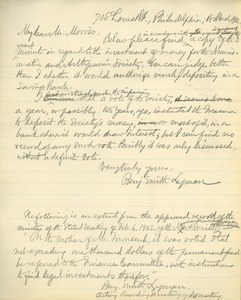 708 Locust St., Philadelphia,
My dear Mr. Morris:
Below please find a copy of the
minute in regard to the investment of money for the Numis-
matic and Antiquarian Society. You can judge better
than I whether it would authorize merely depositing in a
Saving Bank.
that a vote of the Society,
a year, or possibly two years, ago, instructed the Treasurer
to deposit the Society's money, or most of it, in a
bank where it would draw interest; but I can find no
record of any such vote. Possibly it was only discussed,
without a definite vote.
Very truly yours,
Benj. Smith Lyman.
The following is an extract from the approved record of the
minutes of the Stated Meeting of Feb. 6, 1902, of the
"On the motion of Mr. Townsend, it was voted that
not exceeding one thousand dollars of the permanent fund
be referred to the Finance Committee, with instructions
to find legal investment therefor."
Benj. Smith Lyman,
Acting Recording Secretary of